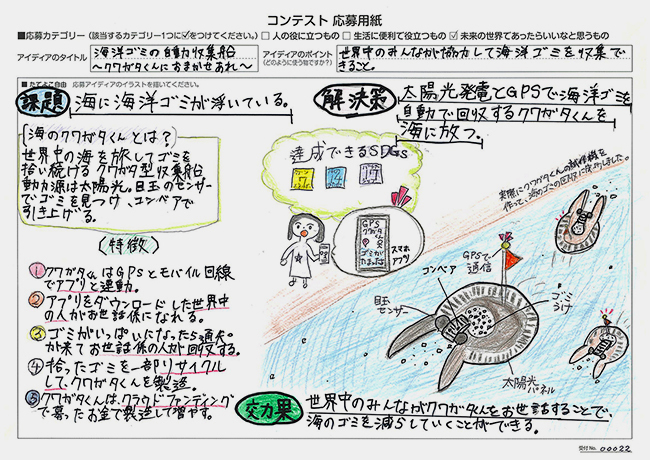 コンテスト 応募用紙
■応募カテゴリー（該当するカテゴリー1つに☑をつけてください。） □ 人の役に立つもの □ 生活に便利で役立つもの ☑ 未来の世界であったらいいなと思うもの
アイディアのタイトル
海洋ゴミの自動収集船
～クワガタくんにおまかせあれ～
アイディアのポイント
（どのように使う物ですか？）
世界中のみんなが協力して海洋ゴミを収集で
きること。
■たてよこ自由 応募アイディアのイラストを描いてください。
課題
海に海洋ゴミが浮いている。
解決策
太陽光発電とGPSで海洋ゴミを
自動で回収するクワガタくんを
海に放つ。
海のクワガタくんとは？
世界中の海を旅してゴミを
拾い続けるクワガタ型収集船
動力源は太陽光。目玉のセンサー
でゴミを見つけ、コンベアで
引き上げる。
（特徴）
① クワガタくんはGPSとモバイル回線
でアプリと連動。
② アプリをダウンロードした世界中
の人がお世話係になれる。
③ ゴミがいっぱいになったら通知
が来てお世話係の人が回収する。
④ 拾ったゴミを一部リサイクル
してクワガタくんを製造。
⑤ クワガタくんは、クラウドファンディング
で募ったお金で製造して増やす。
達成できるSDGs
7
14
17
GPS
クワガタくん
ゴミが
スマホ
アプリ
実際にクワガタくんの試作機を
作って、海のゴミの回収に成功しました。
GPSで
通信
コンベア
目玉
センサー
ゴミ
うけ
太陽光
パネル
効果
世界中のみんながクワガタくんをお世話することで、
海のゴミを減らしていくことができる。
受付No. 00022